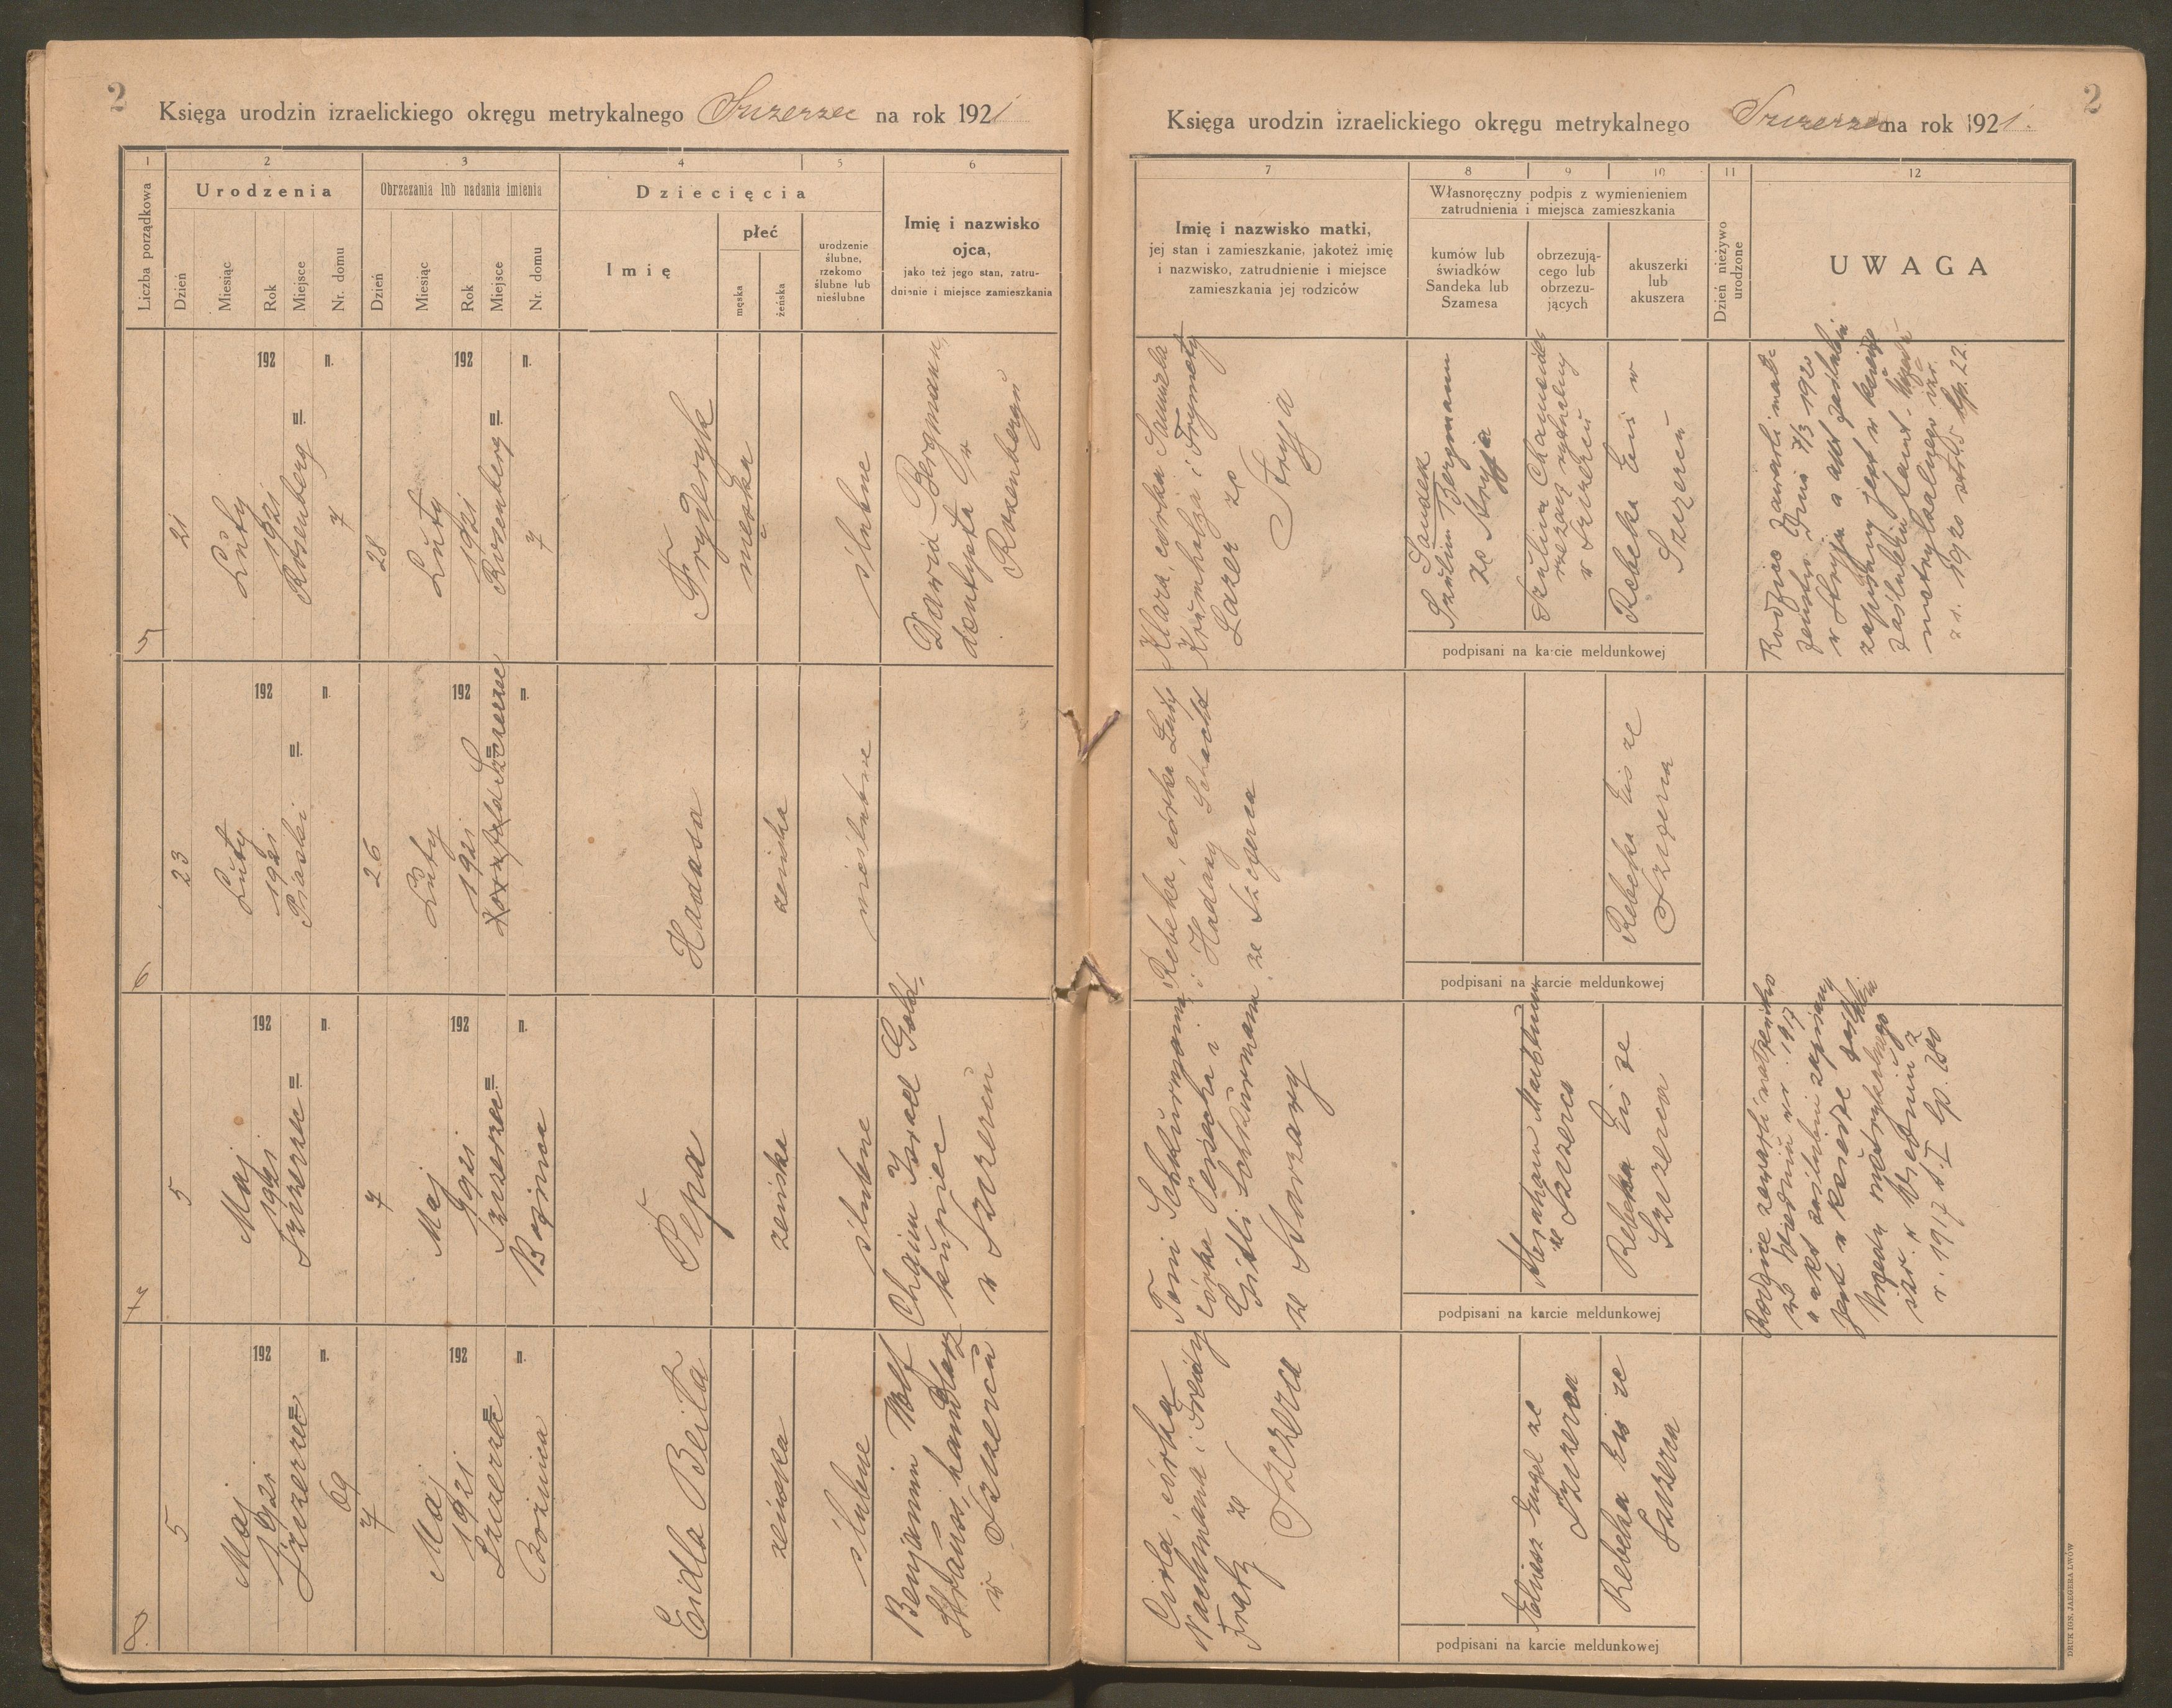 2
Księga urodzin izraelickiego okręgu metrykalnego Szczerzec na rok 1921
1
2
3
4
5
6
Liczba porządkowa
Urodzenia
Obrzezania lub nadania imienia
Dziecięcia
Imię i nazwisko
ojca,
jako też jego stan, zatru-
dnienie i miejsce zamieszkania
Dzień
Miesiąc
Rok
Miejsce
Nr. domu
Dzień
Miesiąc
Rok
Miejsce
Nr. domu
Imię
płeć
męska
żeńska
urodzenie
ślubne,
rzekomo
ślubne lub
nieślubne
5
21
Luty
192
1921
Rosenberg
n.
7
28
Luty
192
1921
Rosenberg
n.
7
Fryderyk
męska
ślubne
Dawid Bergmann,
dentysta w
Rosenbergu
6
23
Luty
192
1921
Piaski
n.
26
Luty
192
1921
Szczerzec
n.
Hadasa
żeńska
nieślubne
7
5
Maj
192
1921
Szczerzec
n.
7
Maj
192
1921
Szczerzec
n.
Bożnica
Pepa
żeńska
ślubne
Chaim Israel Gold,
kupiec
w Szczercu
8.
5
Maj
192
1921
Szczerzec
n.
69
7
Maj
192
1921
Szczerzec
n.
Bożnica
Eidla Beila
żeńska
ślubne
Benjamin Wolf
Strauss, handlarz
w Szczercu
2
Księga urodzin izraelickiego okręgu metrykalnego Szczerzec na rok 1921.
7
8
9
10
11
12
Imię i nazwisko matki,
jej stan i zamieszkanie, jakoteż imię
i nazwisko, zatrudnienie i miejsce
zamieszkania jej rodziców
Własnoręczny podpis z wymienieniem
zatrudnienia i miejsca zamieszkania
kumów lub
świadków
Sandeka lub
Szamesa
obrzezują-
cego lub
obrzezu-
jących
akuszerki
lub
akuszera
Dzień nieżywo
urodzone
UWAGA
Klara, córka Samuela
i Frymety
Lazer ze
Stryja
Sandek
Szulim Bergmann
ze Stryja
Szulim
rzezak rytualny
w Szczercu
Rebeka Eis w
Szczercu
podpisani na karcie meldunkowej
Rodzice zawarli mał-
żeństwo dnia 7/3 1920
w Stryju a akt zaślubin
zapisany jest w księdze
zaślubin tamt. Urzędu
metrykalnego izr.
z r. 1920 lp. 22.
Rebeka, córka
i Hadasy Schächt
ze Szczerca
Rebeka Eis ze
Szczerca
podpisani na karcie meldunkowej
Toni Schkürmann,
córka Persacha i
Gittli Schkürmann
ze Starzawy
Abraham
ze Szczerca
Rebeka Eis ze
Szczerca
podpisani na karcie meldunkowej
Rodzice zawarli małżeństwo
w Wiedniu w r. 1917
a akt zaślubin zapisany
jest w księdze zaślubin
Urzędu metrykalnego
izr. w Wiedniu z
r. 1917
Cirla, córka
Nachmana i Freidy
ze
Szczerca
Eliasz Engel ze
Szczerca
Rebeka Eis ze
Szczerca
podpisani na karcie meldunkowej
DRUK IGN. JAEGERA LWÓW